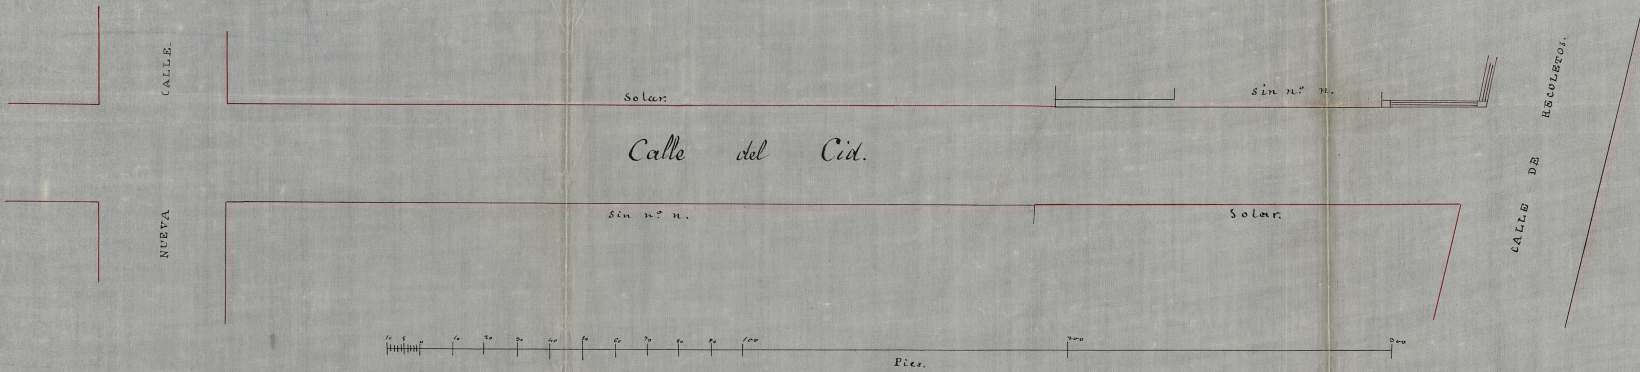 CALLE.
NUEVA
Solar.
sin nº. n.
Calle del Cid.
sin nº. n.
Solar.
CALLE DE RECOLETOS.
10 5 0 10 20 30 40 50 60 70 80 90 100 200 300
Pies.